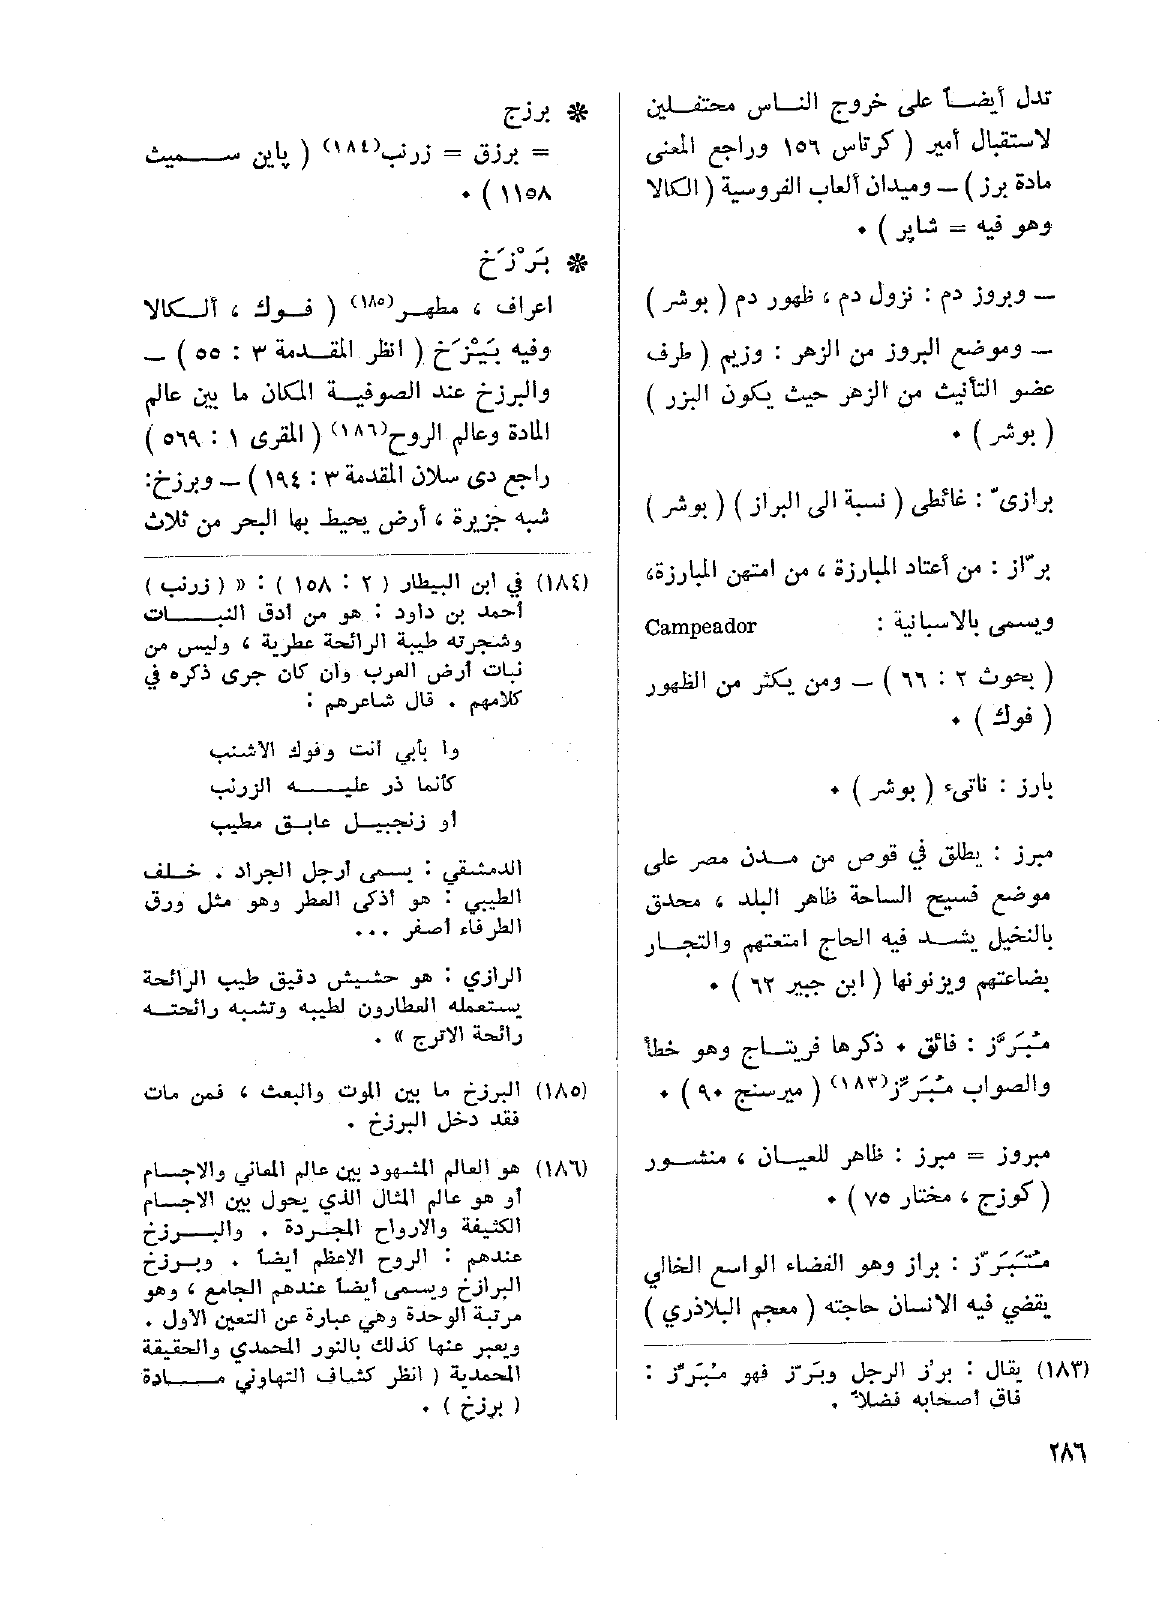 تدل أيضاً على خروج الناس محتفلين
لاستقبال أمير ( كرتاس ١٥٦ وراجع المعنى
مادة برز ) ــ وميدان ألعاب الفروسية ( الكالا
وهو فيه = شاپر ) ٠
ــ وبروز دم : نزول دم ، ظهور دم ( بوشر )
ــ وموضع البروز من الزهر : وزيم ( طرف
عضو التأنيث من الزهر حيث يكون البزر )
( بوشر ) ٠
برازىّ : غائطى ( نسبة الى البراز ) ( بوشر )
برّاز : من أعتاد المبارزة ، من امتهن المبارزة،
ويسمى بالاسبانية : Campeador
( بحوث ٢ : ٦٦ ) ــ ومن يكثر من الظهور
( فوك ) ٠
بارز : ناتىء ( بوشر ) ٠
مبرز : يطلق في قوص من مدن مصر على
موضع فسيح الساحة ظاهر البلد ، محدق
بالنخيل يشد فيه الحاج امتعتهم والتجار
بضاعتهم ويزنونها ( ابن جبير ٦٢ ) ٠
مُبَرَّز : فائق ٠ ذكرها فريتاج وهو خطأ
والصواب مُبَرِّز(١٨٣) ( ميرسنج ٩٠ ) ٠
مبروز = مبرز : ظاهر للعيان ، منشور
( كوزج ، مختار ٧٥ ) ٠
مُتَبَرَّز : براز وهو الفضاء الواسع الخالي
يقضي فيه الانسان حاجته ( معجم البلاذري )
(١٨٣) يقال : برُز الرجل وبَرّز فهو مُبَرِّز :
فاق أصحابه فضلاً .
❋ برزج
= برزق = زرنب(١٨٤) ( پاين سميث
١١٥٨ ) ٠
❋ بَرْزَخ
اعراف ، مطهر(١٨٥) ( فوك ، ألكالا
وفيه بَيْرَخ ( انظر المقدمة ٣ : ٥٥ ) ــ
والبرزخ عند الصوفية المكان ما بين عالم
المادة وعالم الروح(١٨٦) ( المقرى ١ : ٥٦٩ )
راجع دى سلان المقدمة ٣ : ١٩٤ ) ــ وبرزخ:
شبه جزيرة ، أرض يحيط بها البحر من ثلاث
(١٨٤) في ابن البيطار ( ٢ : ١٥٨ ) : « ( زرنب )
أحمد بن داود : هو من أدق النبات
وشجرته طيبة الرائحة عطرية ، وليس من
نبات أرض العرب وان كان جرى ذكره في
كلامهم . قال شاعرهم :
وا بأبي أنت وفوك الاشنب
كأنما ذر عليه الزرنب
أو زنجبيل عابق مطيب
الدمشقي : يسمى أرجل الجراد . خلف
الطيبي : هو أذكى العطر وهو مثل ورق
الطرفاء أصفر ...
الرازي : هو حشيش دقيق طيب الرائحة
يستعمله العطارون لطيبه وتشبه رائحته
رائحة الاترج » .
(١٨٥) البرزخ ما بين الموت والبعث ، فمن مات
فقد دخل البرزخ .
(١٨٦) هو العالم المشهود بين عالم المعاني والاجسام
أو هو عالم المثال الذي يحول بين الاجسام
الكثيفة والارواح المجردة . والبرزخ
عندهم : الروح الاعظم أيضاً . وبرزخ
البرازخ ويسمى أيضاً عندهم الجامع ، وهو
مرتبة الوحدة وهي عبارة عن التعين الاول .
ويعبر عنها كذلك بالنور المحمدي والحقيقة
المحمدية ( انظر كشاف التهاوني مادة
( برزخ ) .
٢٨٦